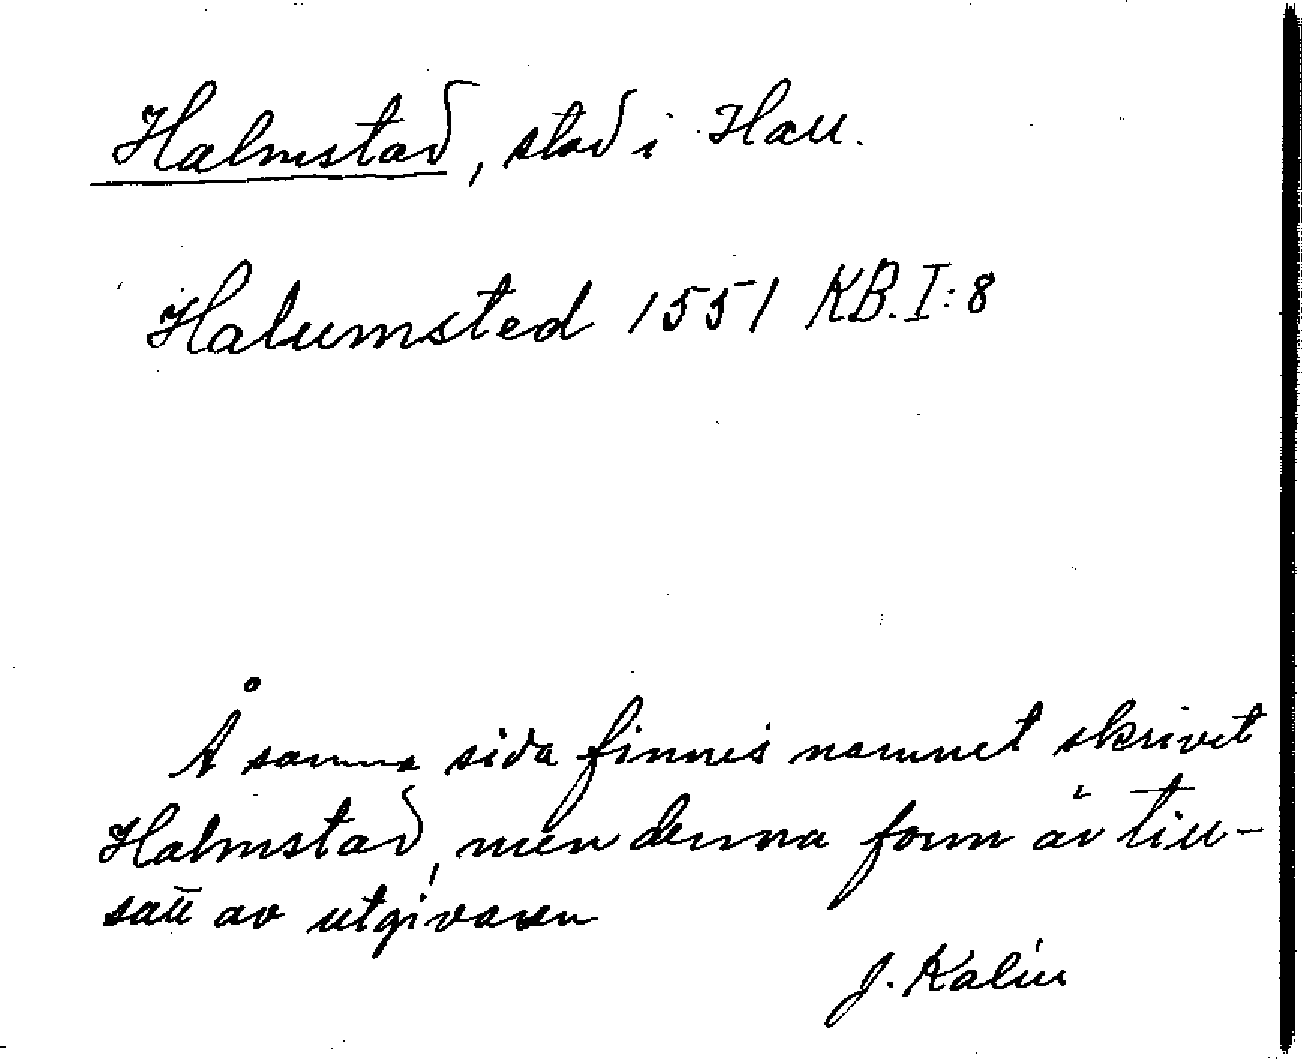 Halmstad, stad i Hall.
Halumsted 1551 KB.I:8
Å samma sida finnes namnet skrivet
Halmstad, men denna form är till-
satt av utgivaren
J. Kalén